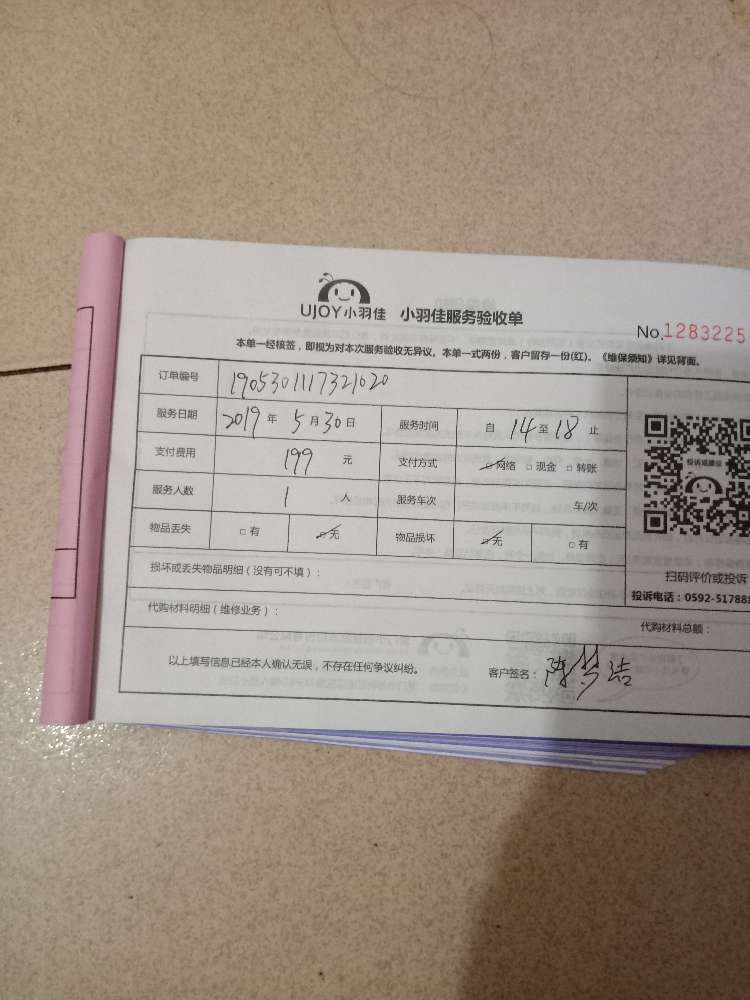 UJOY小羽佳 小羽佳服务验收单
No.1283225
本单一经核签，即视为对本次服务验收无异议。本单一式两份，客户留存一份(红)。《维保须知》详见背面。
订单编号 1905301117321020
服务日期 2019 年 5 月 30 日 服务时间 自 14 至 18 止
支付费用 199 元 支付方式 □网络 □现金 □转账
投诉或建议
服务人数 1 人 服务车次 车/次
物品丢失 □有 □无 物品损坏 □无 □有
扫码评价或投诉
损坏或丢失物品明细（没有可不填）：
投诉电话：0592-517888
代购材料明细（维修业务）：
代购材料总额：
以上填写信息已经本人确认无误，不存在任何争议纠纷。 客户签名：陈 洁